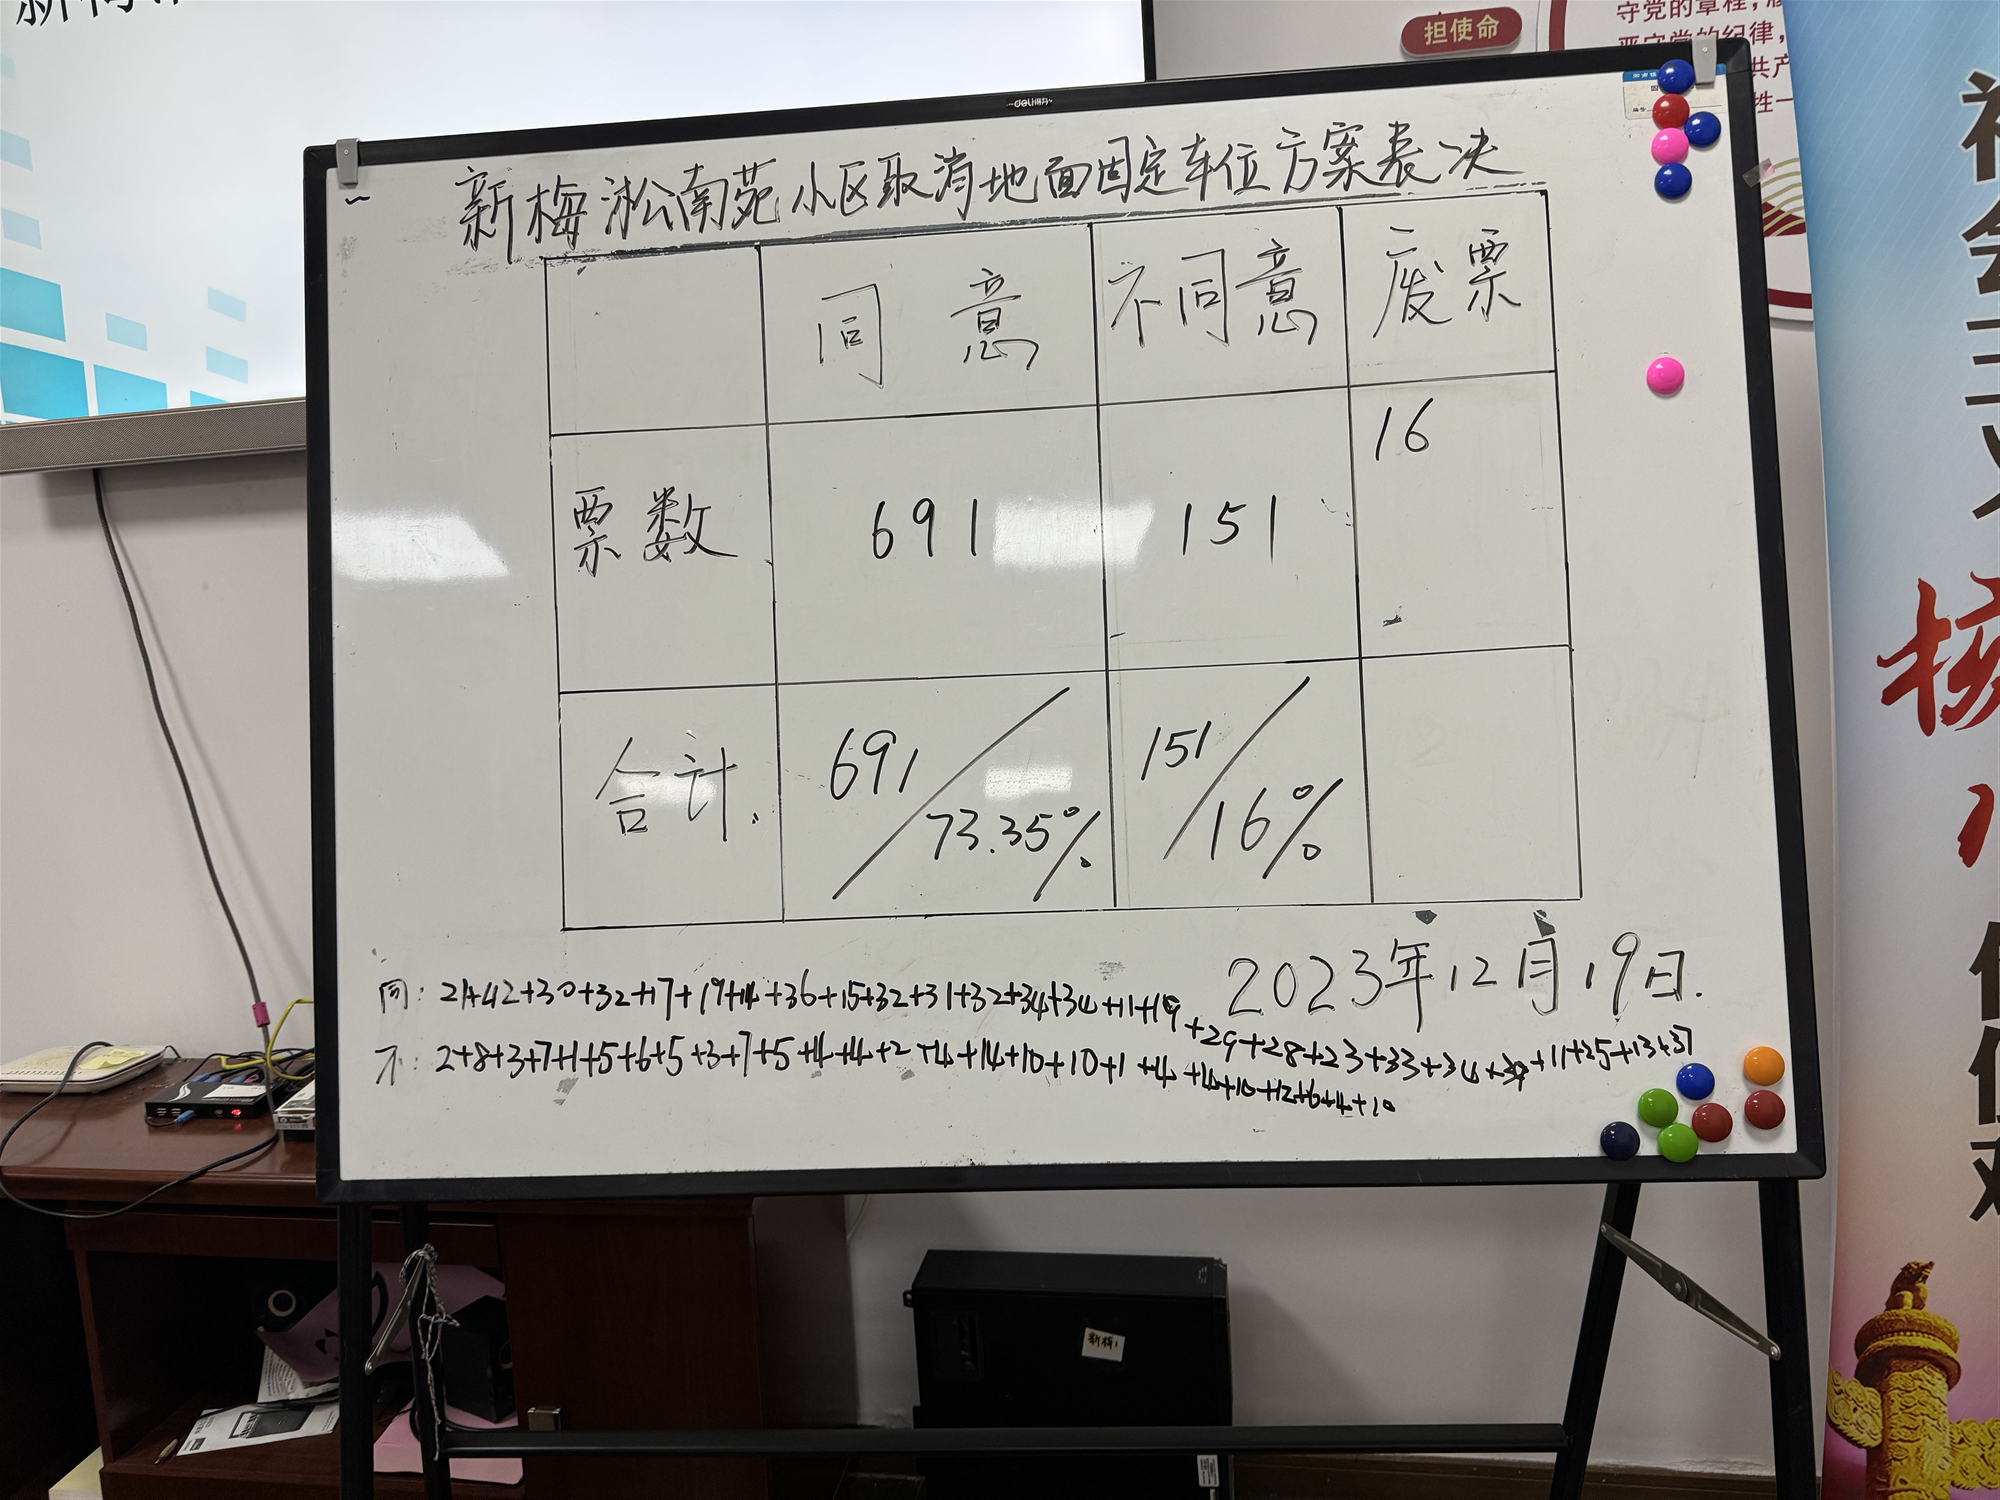 新梅
担使命
守党的章程，
严守党的纪律，
共产
性一
deli得力
新梅淞南苑小区取消地面固定车位方案表决
同意 不同意 废票
票数 691 151 16
合计. 691/73.35% 151/16%
2023年12月19日.
同: 21+42+30+32+17+19+14+36+15+32+31+32+34+34+11+19
+29+28+23+33+34+39+11+25+13+37
不: 2+8+3+7+1+5+6+5+3+7+5+4+4+2+4+14+10+10+1+4
+4+10+12+6+4+10
社会主义
核
新梅1